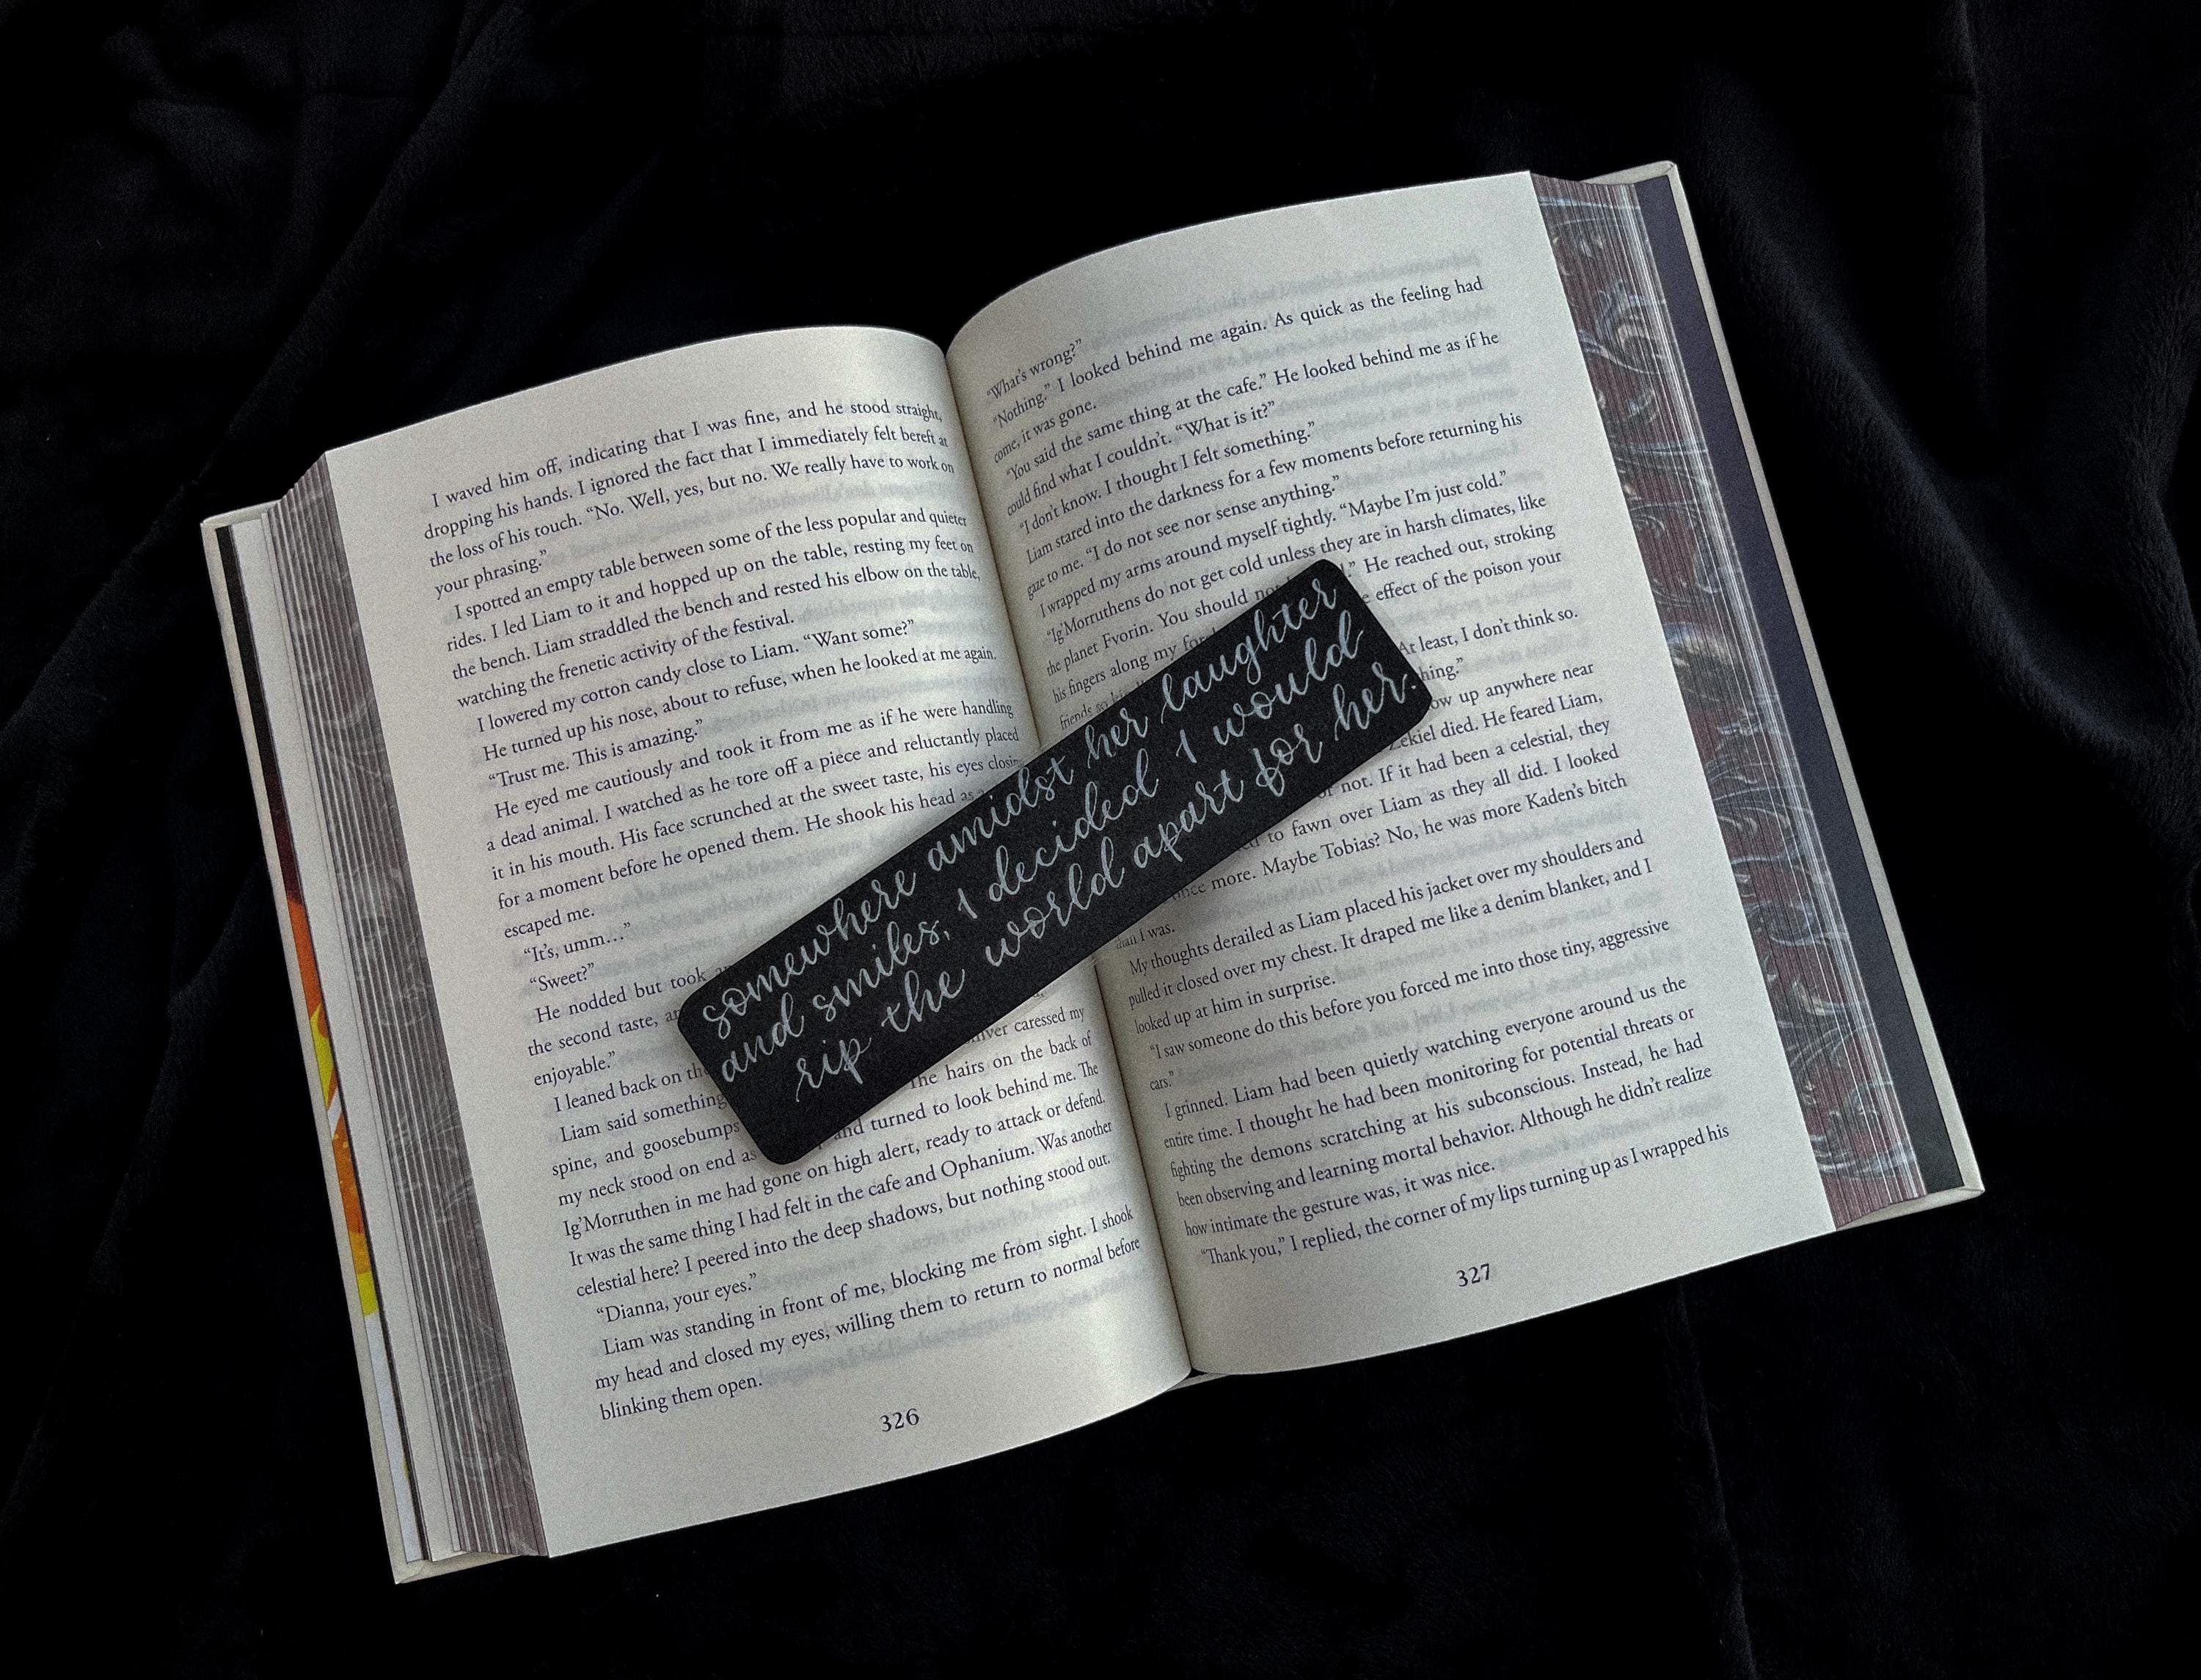 I waved him off, indicating that I was fine, and he stood straight,
dropping his hands. I ignored the fact that I immediately felt bereft at
the loss of his touch. “No. Well, yes, but no. We really have to work on
your phrasing.”
I spotted an empty table between some of the less popular and quieter
rides. I led Liam to it and hopped up on the table, resting my feet on
the bench. Liam straddled the bench and rested his elbow on the table,
watching the frenetic activity of the festival.
I lowered my cotton candy close to Liam. “Want some?”
He turned up his nose, about to refuse, when he looked at me again.
“Trust me. This is amazing.”
He eyed me cautiously and took it from me as if he were handling
a dead animal. I watched as he tore off a piece and reluctantly placed
it in his mouth. His face scrunched at the sweet taste, his eyes
for a moment before he opened them. He shook his head as
escaped me.
“It’s, umm…”
“Sweet?”
He nodded but took
the second taste,
enjoyable.”
I leaned back on
Liam said something caressed my
spine, and goosebumps The hairs on the back of
my neck stood on end as and turned to look behind me. The
Ig’Morruthen in me had gone on high alert, ready to attack or defend.
It was the same thing I had felt in the cafe and Ophanium. Was another
celestial here? I peered into the deep shadows, but nothing stood out.
“Dianna, your eyes.”
Liam was standing in front of me, blocking me from sight. I shook
my head and closed my eyes, willing them to return to normal before
blinking them open.
326
somewhere amidst her laughter
and smiles, I decided I would
rip the world apart for her.
“What’s wrong?”
“Nothing.” I looked behind me again. As quick as the feeling had
come, it was gone.
“You said the same thing at the cafe.” He looked behind me as if he
could find what I couldn’t. “What is it?”
“I don’t know. I thought I felt something.”
Liam stared into the darkness for a few moments before returning his
gaze to me. “I do not see nor sense anything.”
I wrapped my arms around myself tightly. “Maybe I’m just cold.”
“Ig’Morruthens do not get cold unless they are in harsh climates, like
the planet Fvorin. You should not He reached out, stroking
his fingers along my effect of the poison your
friends
At least, I don’t think so.
up anywhere near
died. He feared Liam,
not. If it had been a celestial, they
to fawn over Liam as they all did. I looked
more. Maybe Tobias? No, he was more Kaden’s bitch
than I was.
My thoughts derailed as Liam placed his jacket over my shoulders and
pulled it closed over my chest. It draped me like a denim blanket, and I
looked up at him in surprise.
“I saw someone do this before you forced me into those tiny, aggressive
cars.”
I grinned. Liam had been quietly watching everyone around us the
entire time. I thought he had been monitoring for potential threats or
fighting the demons scratching at his subconscious. Instead, he had
been observing and learning mortal behavior. Although he didn’t realize
how intimate the gesture was, it was nice.
“Thank you,” I replied, the corner of my lips turning up as I wrapped his
327